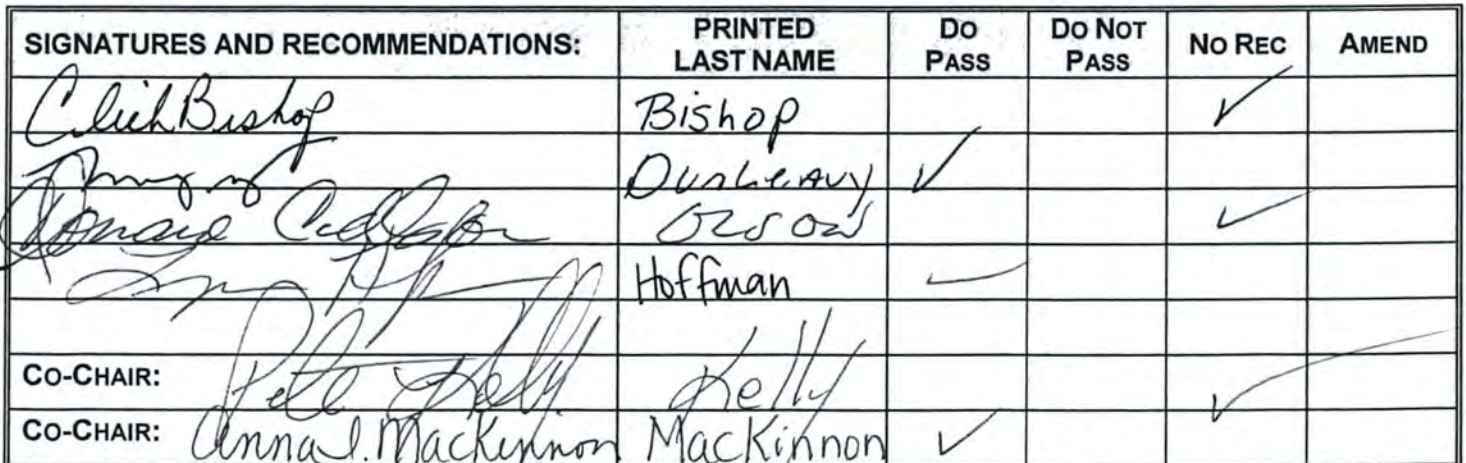 SIGNATURES AND RECOMMENDATIONS: PRINTED LAST NAME DO PASS DO NOT PASS NO REC AMEND
Click Bishop Bishop ✓
Dunleavy ✓
Olson ✓
Hoffman ✓
CO-CHAIR: Pete Kelly Kelly ✓
CO-CHAIR: Anna I. MacKinnon MacKinnon ✓